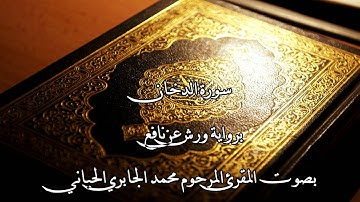 سورة الدخان
برواية ورش عن نافع
بصوت المقرئ المرحوم محمد الجابري الحياني